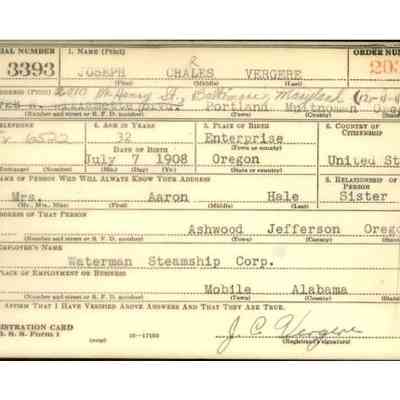 SERIAL NUMBER 1. NAME (Print) R ORDER NUM
3393 JOSEPH CHALES VERGERE 203
(First) (Middle) (Last)
2010 McHenry St., Baltimore, Maryland
Portland Multnomah Oreg
(Number and street or R. F. D. number) (Town) (County)
TELEPHONE 4. AGE IN YEARS 5. PLACE OF BIRTH 6. COUNTRY OF CITIZENSHIP
6522 32 Enterprise
DATE OF BIRTH (Town or county)
July 7 1908 Oregon United St
(Exchange) (Number) (Mo.) (Day) (Yr.) (State or country)
NAME OF PERSON WHO WILL ALWAYS KNOW YOUR ADDRESS 8. RELATIONSHIP OF PERSON
Mrs. Aaron Hale Sister
(Mr., Mrs., Miss) (First) (Middle) (Last)
ADDRESS OF THAT PERSON
Ashwood Jefferson Orego
(Number and street or R. F. D. number) (Town) (County)
EMPLOYER'S NAME
Waterman Steamship Corp.
PLACE OF EMPLOYMENT OR BUSINESS
Mobile Alabama
(Number and street or R. F. D. number) (Town) (County)
I AFFIRM THAT I HAVE VERIFIED ABOVE ANSWERS AND THAT THEY ARE TRUE.
REGISTRATION CARD
D. S. S. Form 1 (over) 16—17105 J. C. Vergere
(Registrant's signature)